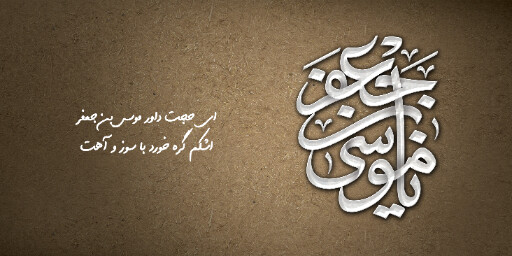 یا موسی بن جعفر
ای حجت داور موسی بن جعفر
اشکم گره خورد با سوز و آهت